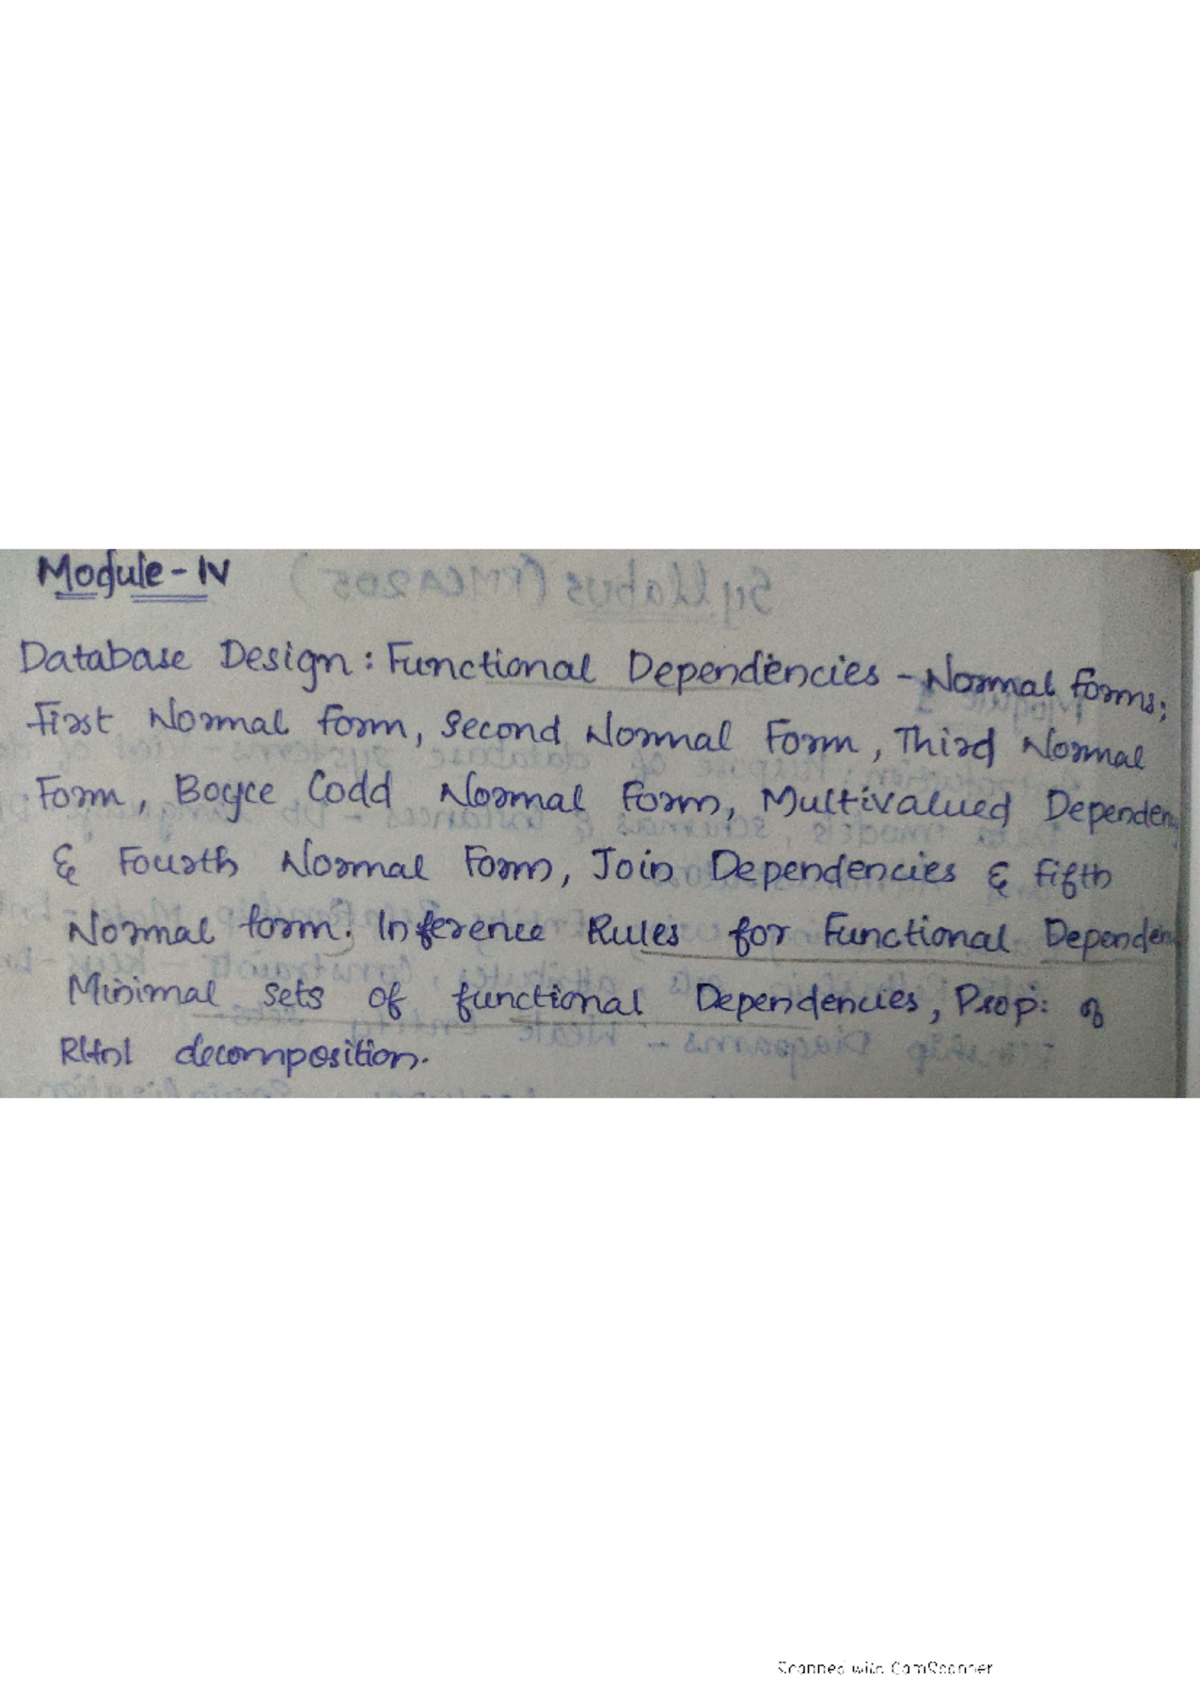 Module - IV
Database Design : Functional Dependencies - Normal forms;
First Normal form, Second Normal Form, Third Normal
Form, Boyce Codd Normal Form, Multivalued Dependen
& Fourth Normal Form, Join Dependencies & Fifth
Normal form. Inference Rules for Functional Dependen
Minimal sets of functional Dependencies, Prop: of
Rltnl decomposition.
Scanned with CamScanner